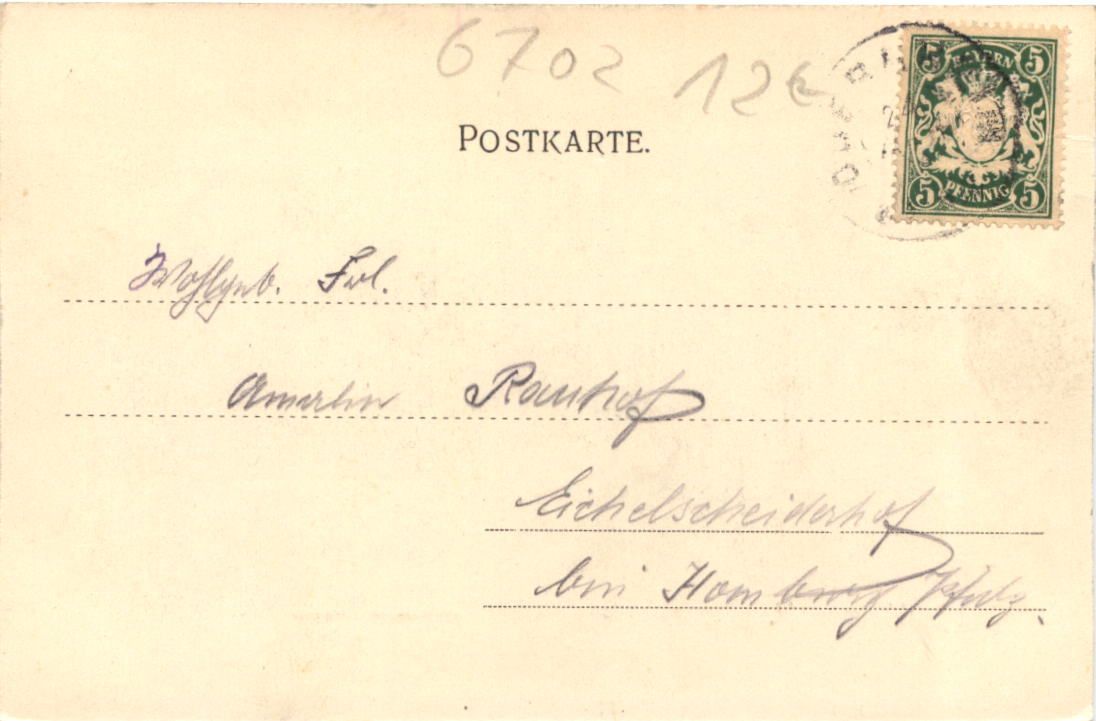 6702 12€
POSTKARTE.
5 BAYERN 5
5 PFENNIG 5
Wohlgeb. Frl.
Amalie Rauhof
Eichelscheiderhof
bei Homburg Pfalz.